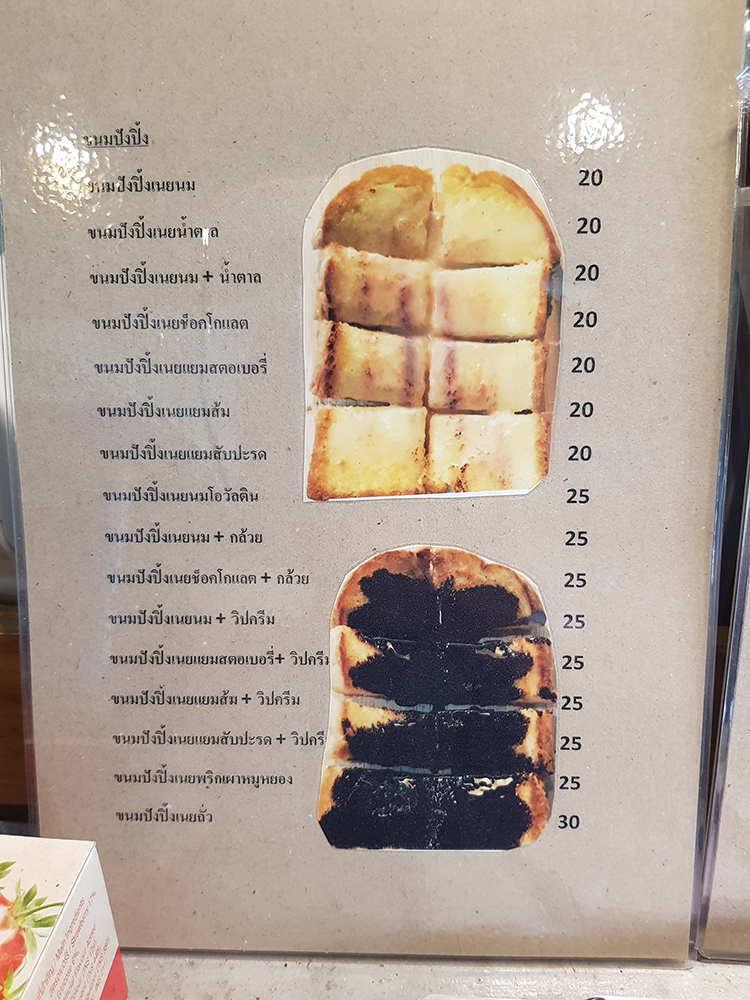 ขนมปังปิ้ง
ขนมปังปิ้งเนยนม 20
ขนมปังปิ้งเนยน้ำตาล 20
ขนมปังปิ้งเนยนม + น้ำตาล 20
ขนมปังปิ้งเนยช็อคโกแลต 20
ขนมปังปิ้งเนยแยมสตอเบอรี่ 20
ขนมปังปิ้งเนยแยมส้ม 20
ขนมปังปิ้งเนยแยมสับปะรด 20
ขนมปังปิ้งเนยนมโอวัลติน 25
ขนมปังปิ้งเนยนม + กล้วย 25
ขนมปังปิ้งเนยช็อคโกแลต + กล้วย 25
ขนมปังปิ้งเนยนม + วิปครีม 25
ขนมปังปิ้งเนยแยมสตอเบอรี่+ วิปครีม 25
ขนมปังปิ้งเนยแยมส้ม + วิปครีม 25
ขนมปังปิ้งเนยแยมสับปะรด + วิปครี 25
ขนมปังปิ้งเนยพริกเผาหมูหยอง 25
ขนมปังปิ้งเนยถั่ว 30
Main Ingredients
Strawberry